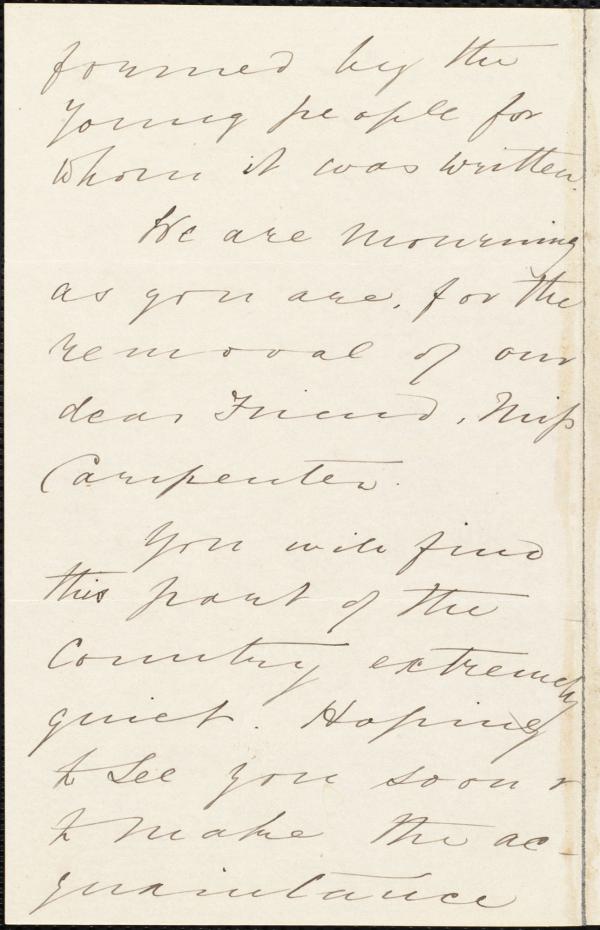 formed by the
young people for
whom it was written.
We are mourning
as you are, for the
removal of our
dear Friend, Miss
Carpenter.
You will find
this part of the
Country extremely
quiet. Hoping
to see you soon &
to make the ac-
quaintance